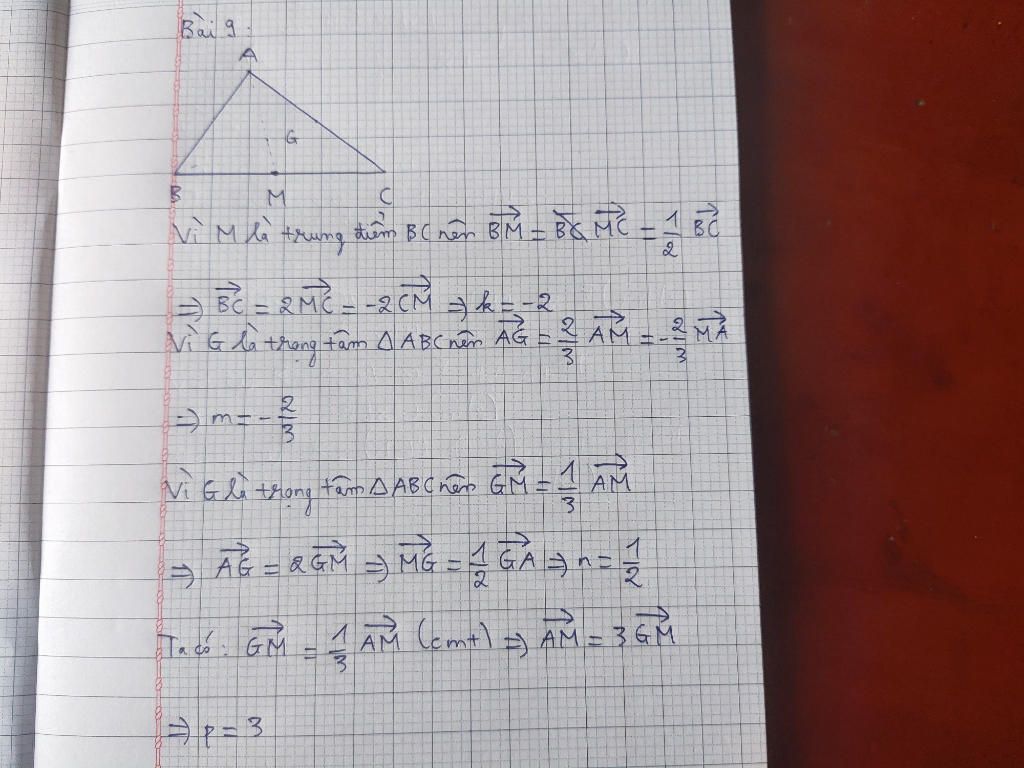 Bài 9:
A
G
B M C
Vì M là trung điểm BC nên $\overrightarrow{BM} = \overrightarrow{MC} = \frac{1}{2} \overrightarrow{BC}$
⇒ $\overrightarrow{BC} = 2\overrightarrow{MC} = -2\overrightarrow{CM}$ ⇒ k = -2
Vì G là trọng tâm △ABC nên $\overrightarrow{AG} = \frac{2}{3} \overrightarrow{AM} = -\frac{2}{3} \overrightarrow{MA}$
⇒ m = $-\frac{2}{3}$
Vì G là trọng tâm △ABC nên $\overrightarrow{GM} = \frac{1}{3} \overrightarrow{AM}$
⇒ $\overrightarrow{AG} = 2\overrightarrow{GM}$ ⇒ $\overrightarrow{MG} = \frac{1}{2} \overrightarrow{GA}$ ⇒ n = $\frac{1}{2}$
Ta có: $\overrightarrow{GM} = \frac{1}{3} \overrightarrow{AM}$ (cmt) ⇒ $\overrightarrow{AM} = 3\overrightarrow{GM}$
⇒ p = 3